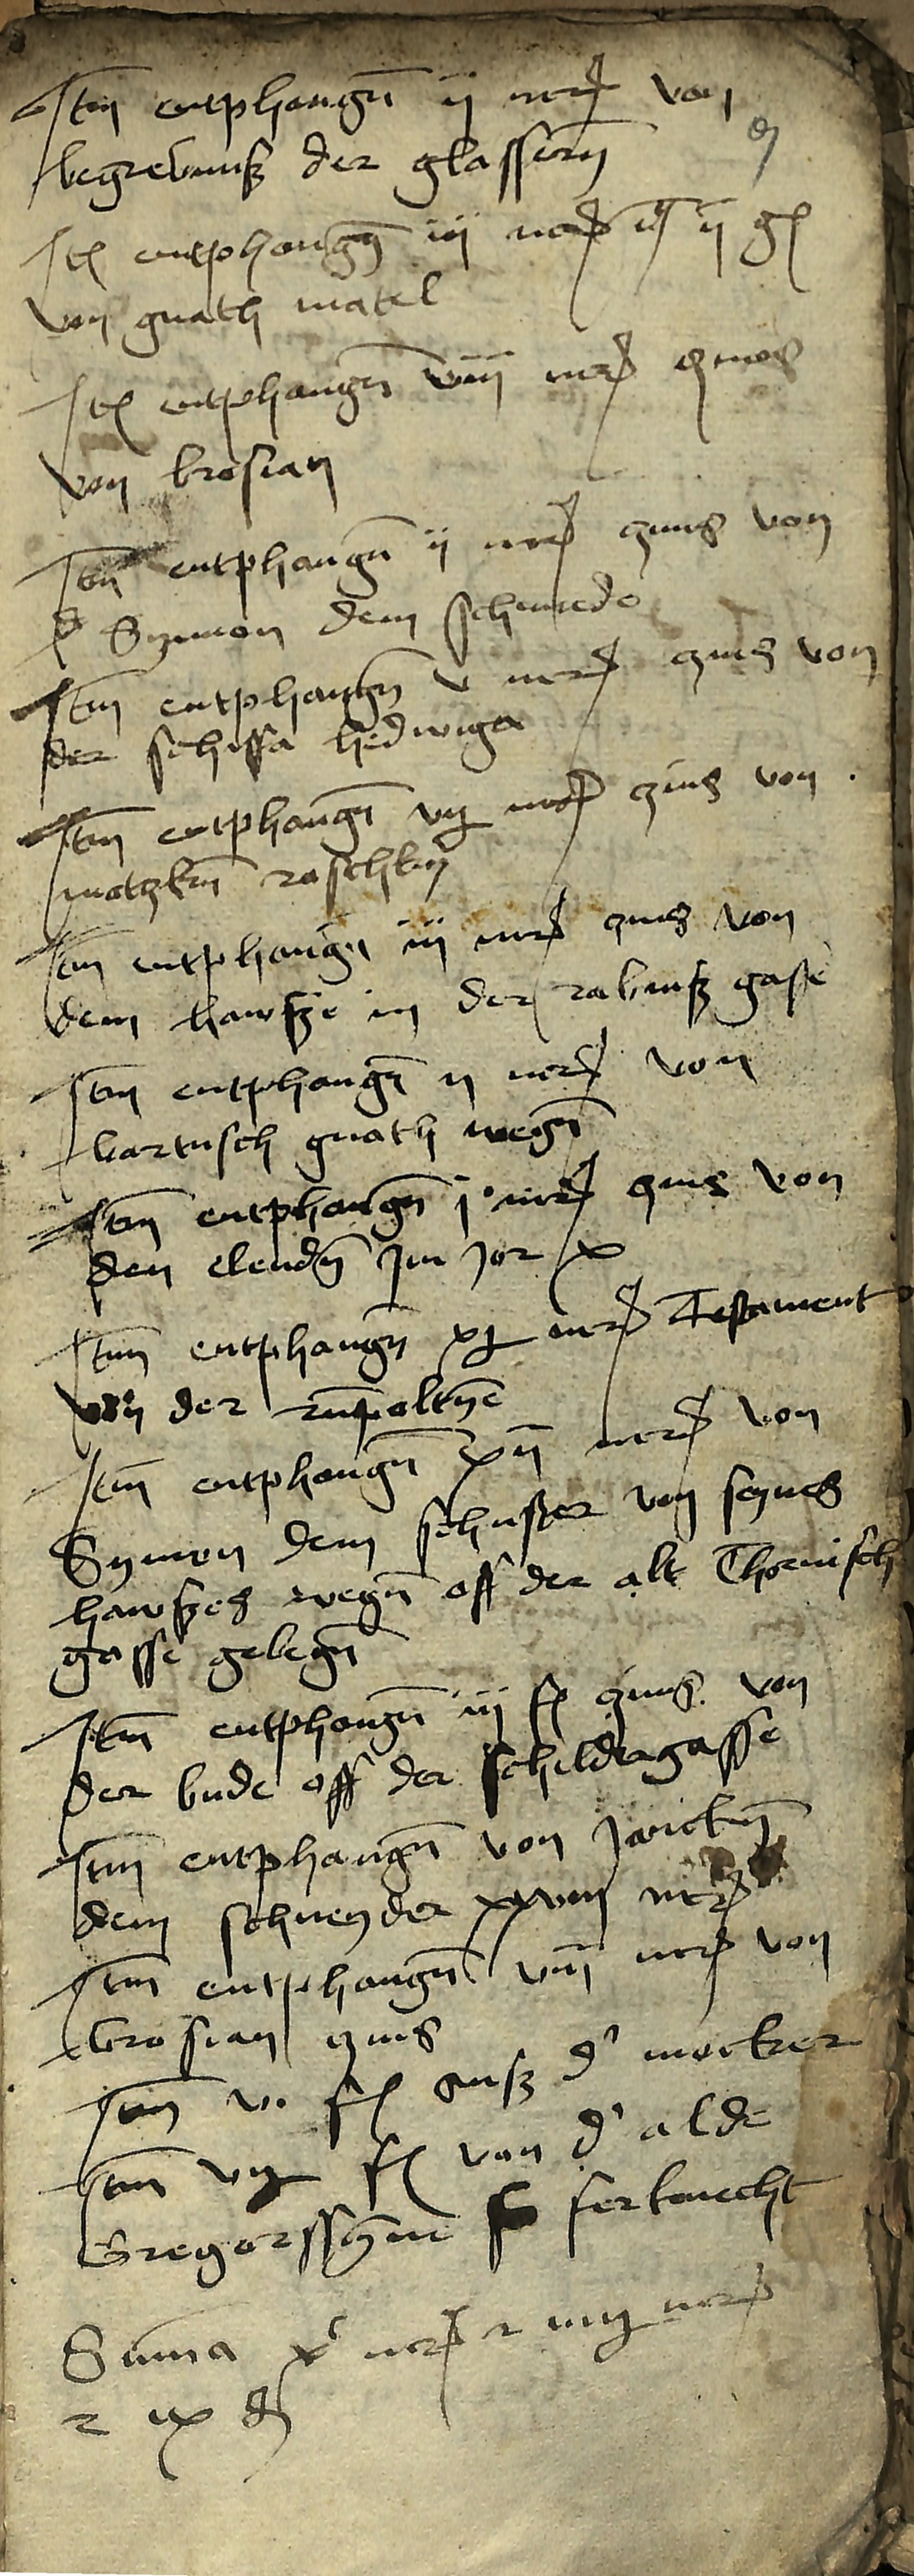 Item entphangn̄ ij mrꝭ von
begrebnuß der glassern̄
Itꝭ entphangn̄ iij mrꝭ ij gꝭ
von gnath matel
Itꝭ entphangn̄ viij mrꝭ czins
von brosian
Item entphangn̄ ij mrꝭ czins von
Symon dem schmede
Item entphangn̄ v mrꝭ czins von
der hedwiga
Item entphangn̄ vij mrꝭ czins von
matzkn̄ raschkn̄
Item entphangn̄ iij mrꝭ czins von
dem hawsze in der rabinß gasse
Item entphangn̄ ij mrꝭ von
bartusch gnath wegn̄
Item entphangn̄ j mrꝭ czins von
den elendn̄ jm jor x
Item entphangn̄ xj mrꝭ Testament
von der
Item entphangn̄ xij mrꝭ von
Symon dem schuster von seynes
hawszes wegn̄ off der alt Thornisch
gasse gelegn̄
Item entphangn̄ iij fꝭ czins von
der bude off der schildergasse
Item entphangn̄ von jacickn̄
dem schneyder xxviij mrꝭ
Item entphangn̄ viij mrꝭ von
brosian czins
Item v fꝭ d' mocker
Item vij fꝭ von d' alde
Gregorssynne
Summa mrꝭ mrꝭ
ix